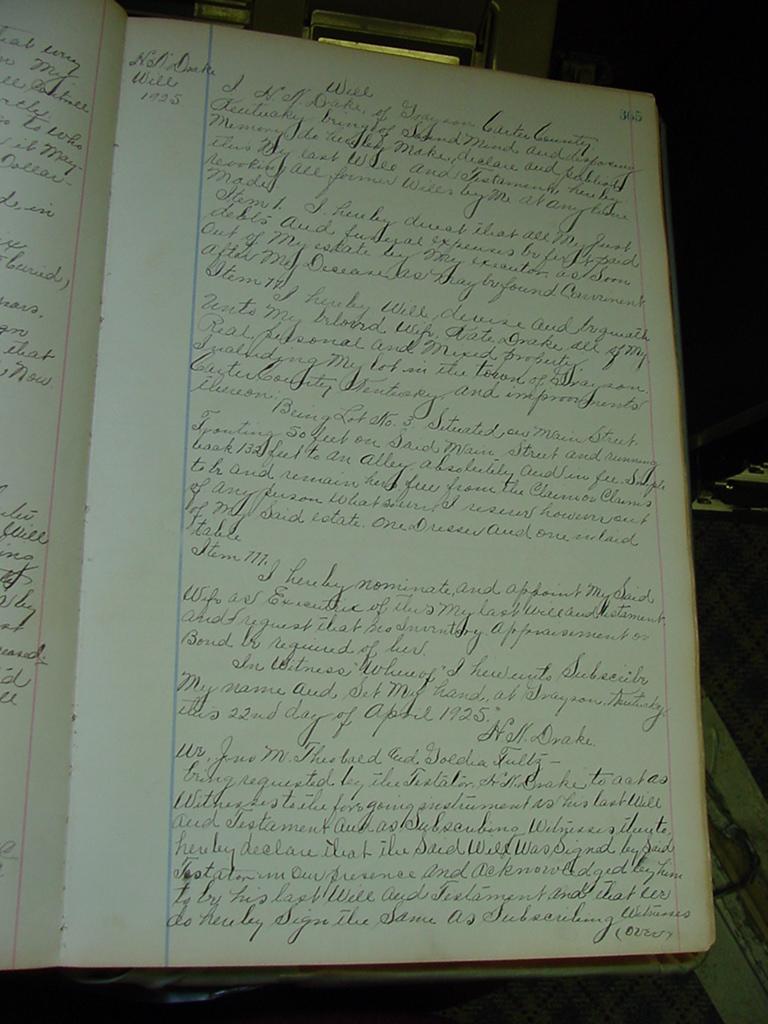 H. N. Drake
Will
1925
365
Will
I H. N. Drake, of Grayson Carter County
Kentucky being of Sound Mind and disposing
Memory do hereby Make, declare and publish
this My last Will and Testament, hereby
revoking all former Wills by Me at any time
Made.
Item 1. I hereby direct that all My Just
debts and funeral expenses be first paid
Out of My estate by My executor, as Soon
After My Decease as May be found Convenient
Item 11.
I hereby Will, devise and bequeath
Unto My beloved Wife, Kate Drake, all of My
Real, personal and Mixed property,
Including My lot in the town of Grayson,
Carter County, Kentucky, and improvements
thereon.
Being Lot No. 3 Situated on Main Street
Fronting 50 feet on Said Main Street and running
back 132 feet to an Alley absolutely and in fee Simple
to be and remain hers free from the Claim or Claims
of any person Whatsoever, I reserve however out
of My Said estate. One Dresser and one inlaid
table
Item 111.
I hereby nominate, and appoint My Said
Wife as Executrix of this My last Will and testament,
and I request that no Inventory, Appraisement or
Bond be required of her.
In Witness "Whereof" I hereunto Subscribe
My name and Set My hand, at Grayson, Kentucky,
this 22nd day of April 1925."
H. N. Drake.
We, Jno M. Theobald and Goldia Fultz -
being requested by the Testator, H. N. Drake to act as
Witnesses to the foregoing instrument as his last Will
and Testament and as Subscribing Witnesses thereto,
hereby declare that the Said Will Was Signed by Said
Testator in Our presence and Acknowledged by him
to by his last Will and Testament and that We
do hereby Sign the Same as Subscribing Witnesses
(over)